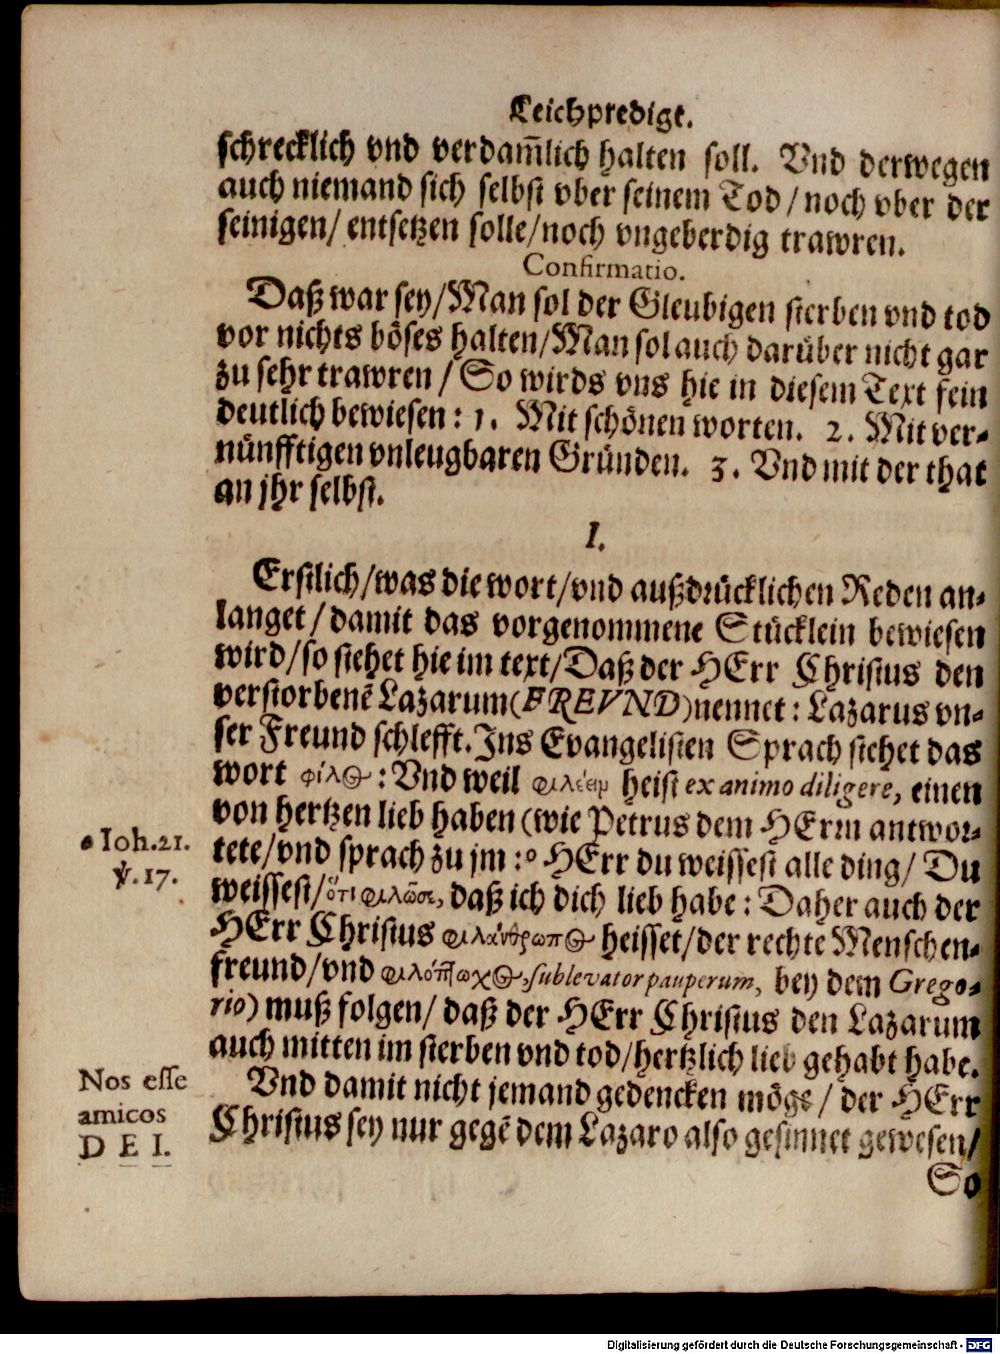 Leichpredigt.
schrecklich vnd verdam̃lich halten soll. Vnd derwegen
auch niemand sich selbst vber seinem Tod / noch vber der
seinigen / entsetzen solle / noch vngeberdig trawren.
Confirmatio.
Daß war sey / Man sol der Gleubigen sterben vnd tod
vor nichts böses halten / Man sol auch darüber nicht gar
zu sehr trawren / So wirds vns hie in diesem Text fein
deutlich bewiesen: 1. Mit schönen worten. 2. Mit ver-
nünfftigen vnleugbaren Gründen. 3. Vnd mit der that
an jhr selbst.
I.
Erstlich / was die wort / vnd außdrücklichen Reden an-
langet / damit das vorgenommene Stücklein bewiesen
wird / so stehet hie im text / Daß der HErr Christus den
verstorbenẽ Lazarum (FREVND) nennet: Lazarus vn-
ser Freund schlefft. Ins Evangelisten Sprach stehet das
wort φίλος: Vnd weil φιλέειν heist ex animo diligere, einen
von hertzen lieb haben (wie Petrus dem HErrn antwor-
tete / vnd sprach zu jm: ° HErr du weissest alle ding / Du
weissest / ὅτι φιλῶσε, daß ich dich lieb habe: Daher auch der
HErr Christus φιλάνθρωπος heisset / der rechte Menschen-
freund / vnd φιλόπτωχος, sublevator pauperum, bey dem Grego-
rio) muß folgen / daß der HErr Christus den Lazarum
auch mitten im sterben vnd tod / hertzlich lieb gehabt habe.
Vnd damit nicht jemand gedencken möge / der HErr
Christus sey nur gegẽ dem Lazaro also gesinnet gewesen /
So
• Ioh.21.
℣.17.
Nos esse
amicos
DEI.
Digitalisierung gefördert durch die Deutsche Forschungsgemeinschaft - DFG